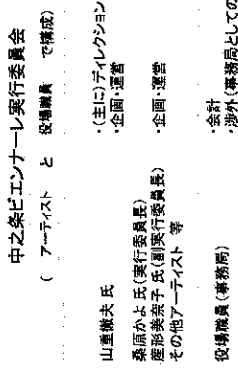 中之条ビエンナーレ実行委員会
( アーティスト と 役場職員 で構成)
山重徹夫 氏
・(主に)ディレクション
・企画・運営
桑原かよ 氏(実行委員長)
産形美奈子 氏(副実行委員長)
その他アーティスト 等
・企画・運営
役場職員(事務局)
・会計
・渉外(事務局としての